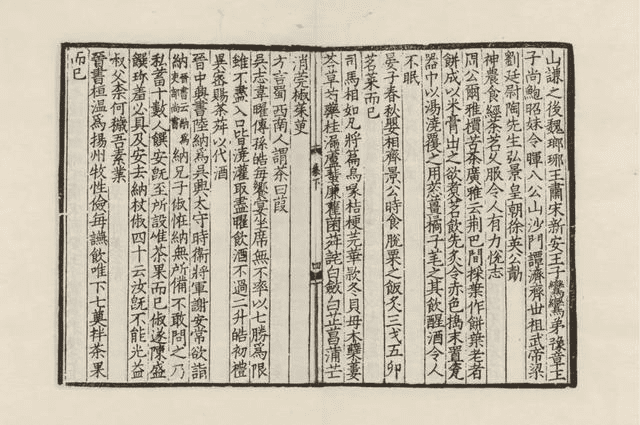 山謙之後魏瑯琊王肅宋新安王子鸞鸞弟豫章王
子尚鮑昭妹令暉八公山沙門譚濟齊世祖武帝梁
劉廷尉陶先生弘景皇朝徐英公勣
神農食經茶茗乆服令人有力悅志
周公爾雅檟苦茶廣雅云荆巴間採葉作餅葉老者
餅成以米膏出之欲煮茗飲先炙令赤色搗末置甆
器中以湯澆覆之用葱薑橘子芼之其飲醒酒令人
不眠
晏子春秋嬰相齊景公時食脫粟之飯炙三弋五卵
茗菜而已
司馬相如凡將篇烏喙桔梗芫華款冬貝母木蘗蔞
芩草芍藥桂漏蘆蜚廉雚菌荈詫白斂白芷菖蒲芒
消莞椒茱萸
方言蜀西南人謂茶曰葭
吳志韋曜傳孫皓每饗宴坐席無不率以七勝爲限
雖不盡入口皆澆灌取盡曜飲酒不過二升皓初禮
異密賜茶荈以代酒
晉中興書陸納爲吳興太守時衛將軍謝安常欲詣
納晉書云納爲吏部尚書納兄子俶恠納無所備不敢問之乃
私蓄十數人饌安旣至所設惟茶果而已俶遂陳盛
饌珍羞必具及安去納杖俶四十云汝旣不能光益
叔父柰何穢吾素業
晉書桓温爲揚州牧性儉每讌飲唯下七奠拌茶果
而已
卷下
四